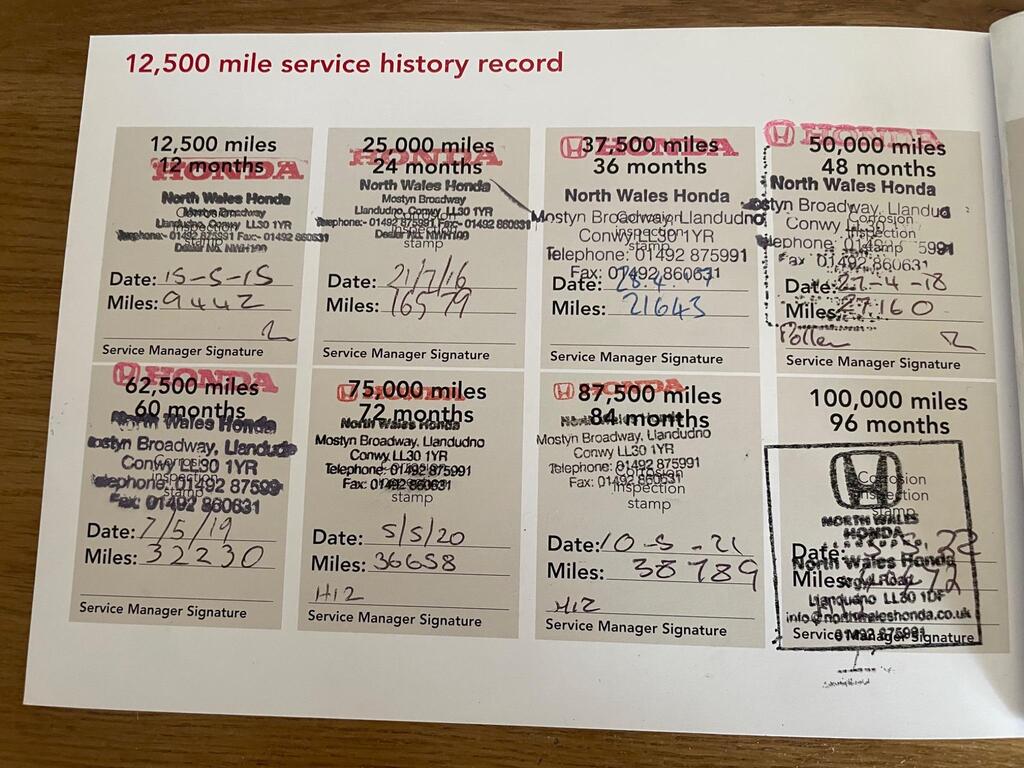 12,500 mile service history record
12,500 miles
12 months
HONDA
North Wales Honda
Mostyn Broadway
Llandudno, Conwy LL30 1YR
Telephone:- 01492 875991 Fax:- 01492 860631
Dealer No. NWH199
Corrosion
inspection
stamp
Date: 15-5-15
Miles: 9442
Service Manager Signature
25,000 miles
24 months
HONDA
North Wales Honda
Mostyn Broadway
Llandudno, Conwy LL30 1YR
Telephone:- 01492 875991 Fax:- 01492 860631
Dealer No. NWH199
Corrosion
inspection
stamp
Date: 21/7/16
Miles: 16579
Service Manager Signature
37,500 miles
36 months
HONDA
North Wales Honda
Mostyn Broadway, Llandudno
Conwy LL30 1YR
Telephone: 01492 875991
Fax: 01492 860631
Corrosion
inspection
stamp
Date: 28.4.
Miles: 21643
Service Manager Signature
50,000 miles
48 months
HONDA
North Wales Honda
ostyn Broadway, Llandud
Conwy LL30
elephone: 01492 5991
Fax 01492 860631
Corrosion
inspection
stamp
Date: 27-4-18
Miles: 27160
Pollen
Service Manager Signature
62,500 miles
60 months
HONDA
North Wales Honda
ostyn Broadway, Llandudno
Conwy LL30 1YR
elephone: 01492 87599
Fax: 01492 860631
Corrosion
inspection
stamp
Date: 7/5/19
Miles: 32230
Service Manager Signature
75,000 miles
72 months
HONDA
North Wales Honda
Mostyn Broadway, Llandudno
Conwy LL30 1YR
Telephone: 01492 875991
Fax: 01492 860631
stamp
Date: 5/5/20
Miles: 36658
H12
Service Manager Signature
87,500 miles
84 months
HONDA
North Wales Honda
Mostyn Broadway, Llandudno
Conwy LL30 1YR
Telephone: 01492 875991
Fax: 01492 860631
Corrosion
inspection
stamp
Date: 10-5-21
Miles: 38789
H12
Service Manager Signature
100,000 miles
96 months
Corrosion
inspection
stamp
NORTH WALES
HONDA
North Wales Honda
Road
Llandudno LL30 1DF
info@northwaleshonda.co.uk
01492 875991
Date:
Miles:
Service Manager Signature